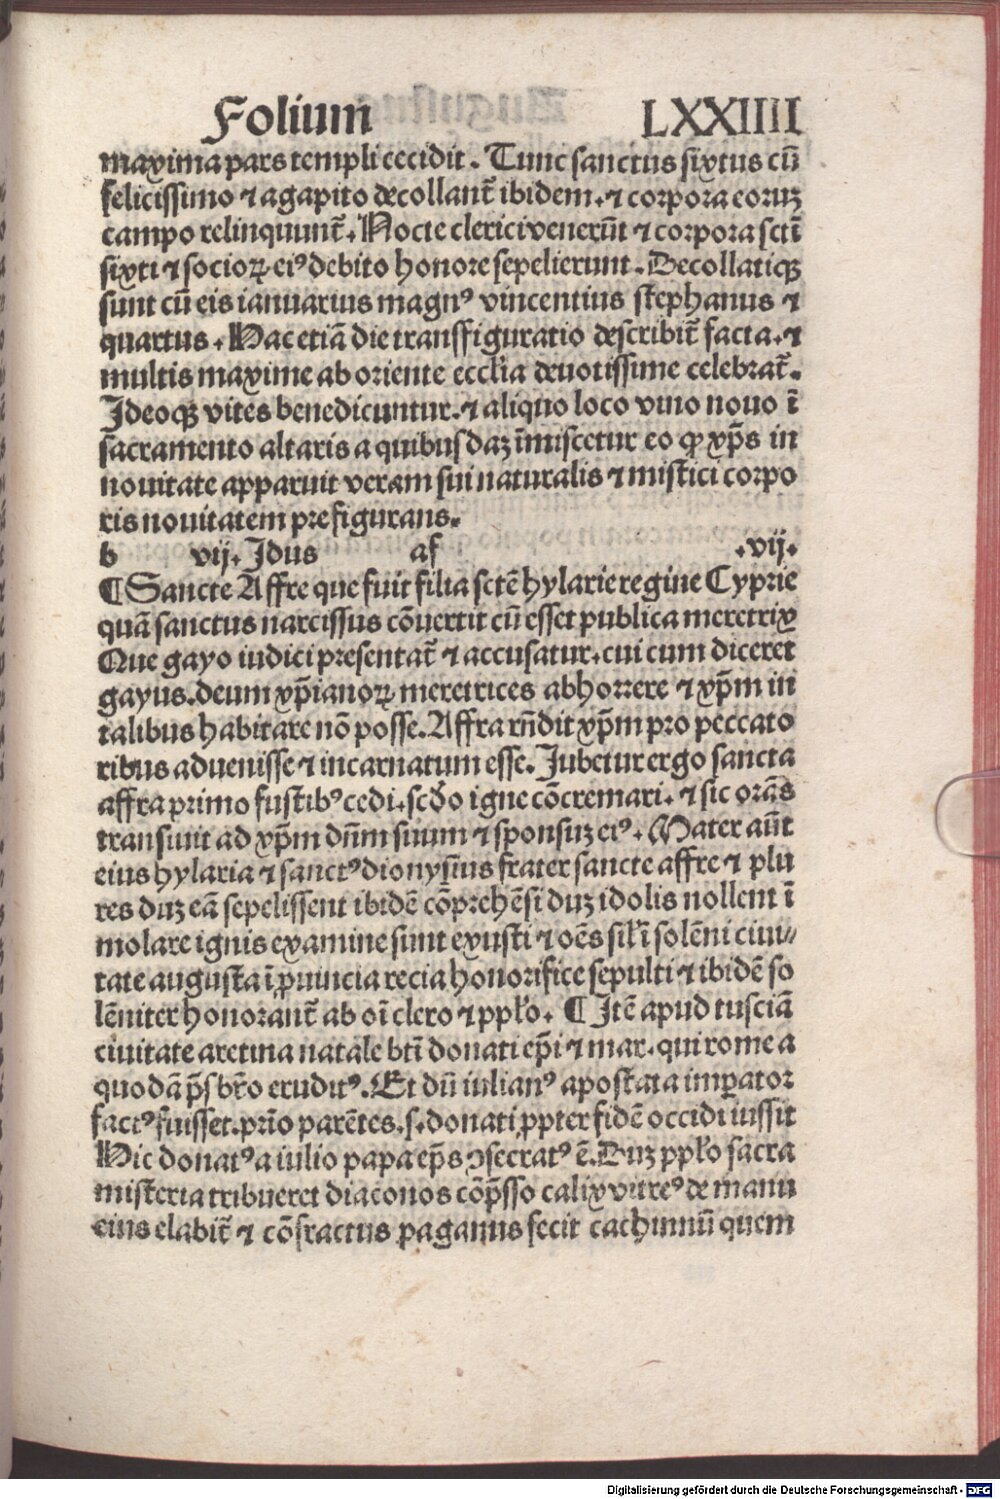 Folium LXXIIII
maxima pars templi cecidit. Tunc sanctus sixtus cū
felicissimo ⁊ agapito decollant̄ ibidem. ⁊ corpora eoruꝫ
campo relinquunt̄. Nocte clerici venerūt ⁊ corpora sctī
sixti ⁊ socioꝝ eiꝰ debito honore sepelierunt. Decollatiqꝫ
sunt cū eis ianuarius magnꝰ vincentius stephanus ⁊
quartus. Hac etiā die transfiguratio describit̄ facta. ⁊
multis maxime ab oriente eccl̄ia deuotissime celebrat̄.
Ideoqꝫ vites benedicuntur. ⁊ aliquo loco vino nouo ī
sacramento altaris a quibusdaꝫ īmiscetur eo ꝙ xp̄s in
nouitate apparuit veram sui naturalis ⁊ mistici corpo
ris nouitatem prefigurans.
b vij. Idus af .vij.
¶ Sancte Affre que fuit filia sctē hylarie regine Cyprie
quā sanctus narcissus cōuertit cū esset publica meretrix
Que gayo iudici presentat̄ ⁊ accusatur. cui cum diceret
gayus. deum xp̄ianoꝝ meretrices abhorrere ⁊ xp̄m in
talibus habitare nō posse. Affra rn̄dit xp̄m pro peccato
ribus aduenisse ⁊ incarnatum esse. Iubetur ergo sancta
affra primo fustibꝰ cedi. scd̄o igne cōcremari. ⁊ sic orās
transiuit ad xp̄m dn̄m suum ⁊ sponsuꝫ eiꝰ. Mater aūt
eius hylaria ⁊ sanctꝰ dionysius frater sancte affre ⁊ plu
res duꝫ eā sepelissent ibidē cōprehēsi duꝫ idolis nollent ī
molare ignis examine sunt exusti ⁊ oēs sil̄i solēni ciui⸗
tate augusta ī ꝓuincia recia honorifice sepulti ⁊ ibidē so
lēniter honorant̄ ab oī clero ⁊ ppl̄o. ¶ Itē apud tusciā
ciuitate aretina natale bt̄i donati ep̄i ⁊ mar. qui rome a
quodā p̄sbr̄o eruditꝰ. Et dū iulianꝰ apostata imꝑator
factꝰ fuisset. pr̄io parētes .s. donati ꝓpter fidē occidi iussit
Hic donatꝰ a iulio papa ep̄s ꝯsecratꝰ ē. Duꝫ ppl̄o sacra
misteria tribueret diaconos cōp̄sso calix vitreꝰ de manu
eius elabit̄ ⁊ cōfractus paganus fecit cachinnū quem
Digitalisierung gefördert durch die Deutsche Forschungsgemeinschaft - DFG